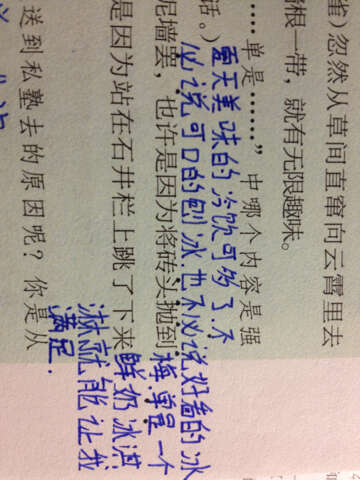 雀)忽然从草间直窜向云霄里去
墙根一带，就有无限趣味。
……单是……”中哪个内容是强
话。)
夏天美味的冷饮可多了.不
必说可口的刨冰.也不必说好看的冰
梅.单是一个
鲜奶冰淇
淋就能让我
满足.
泥墙里，也许是因为将砖头抛到
是因为站在石井栏上跳了下来
送到私塾去的原因呢？你是从